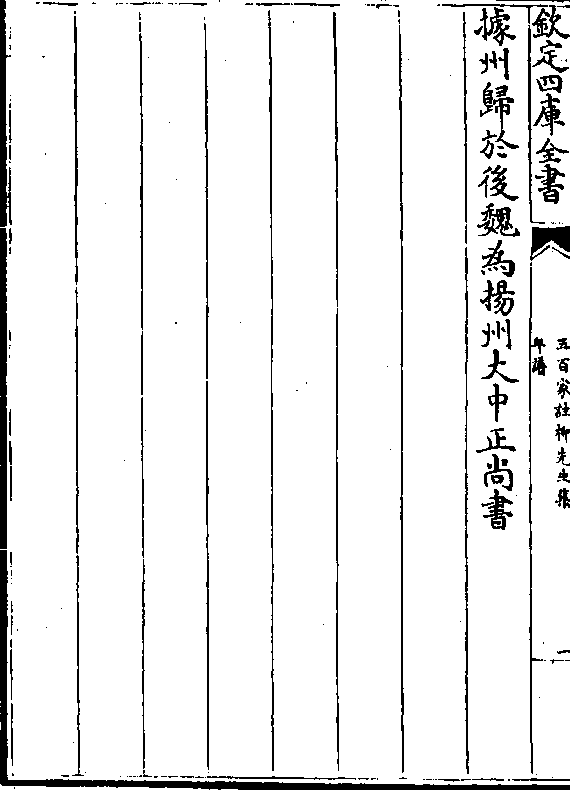 欽定四庫全書
五百家註柳先生集
年譜
一
據州歸於後魏為揚州大中正尚書